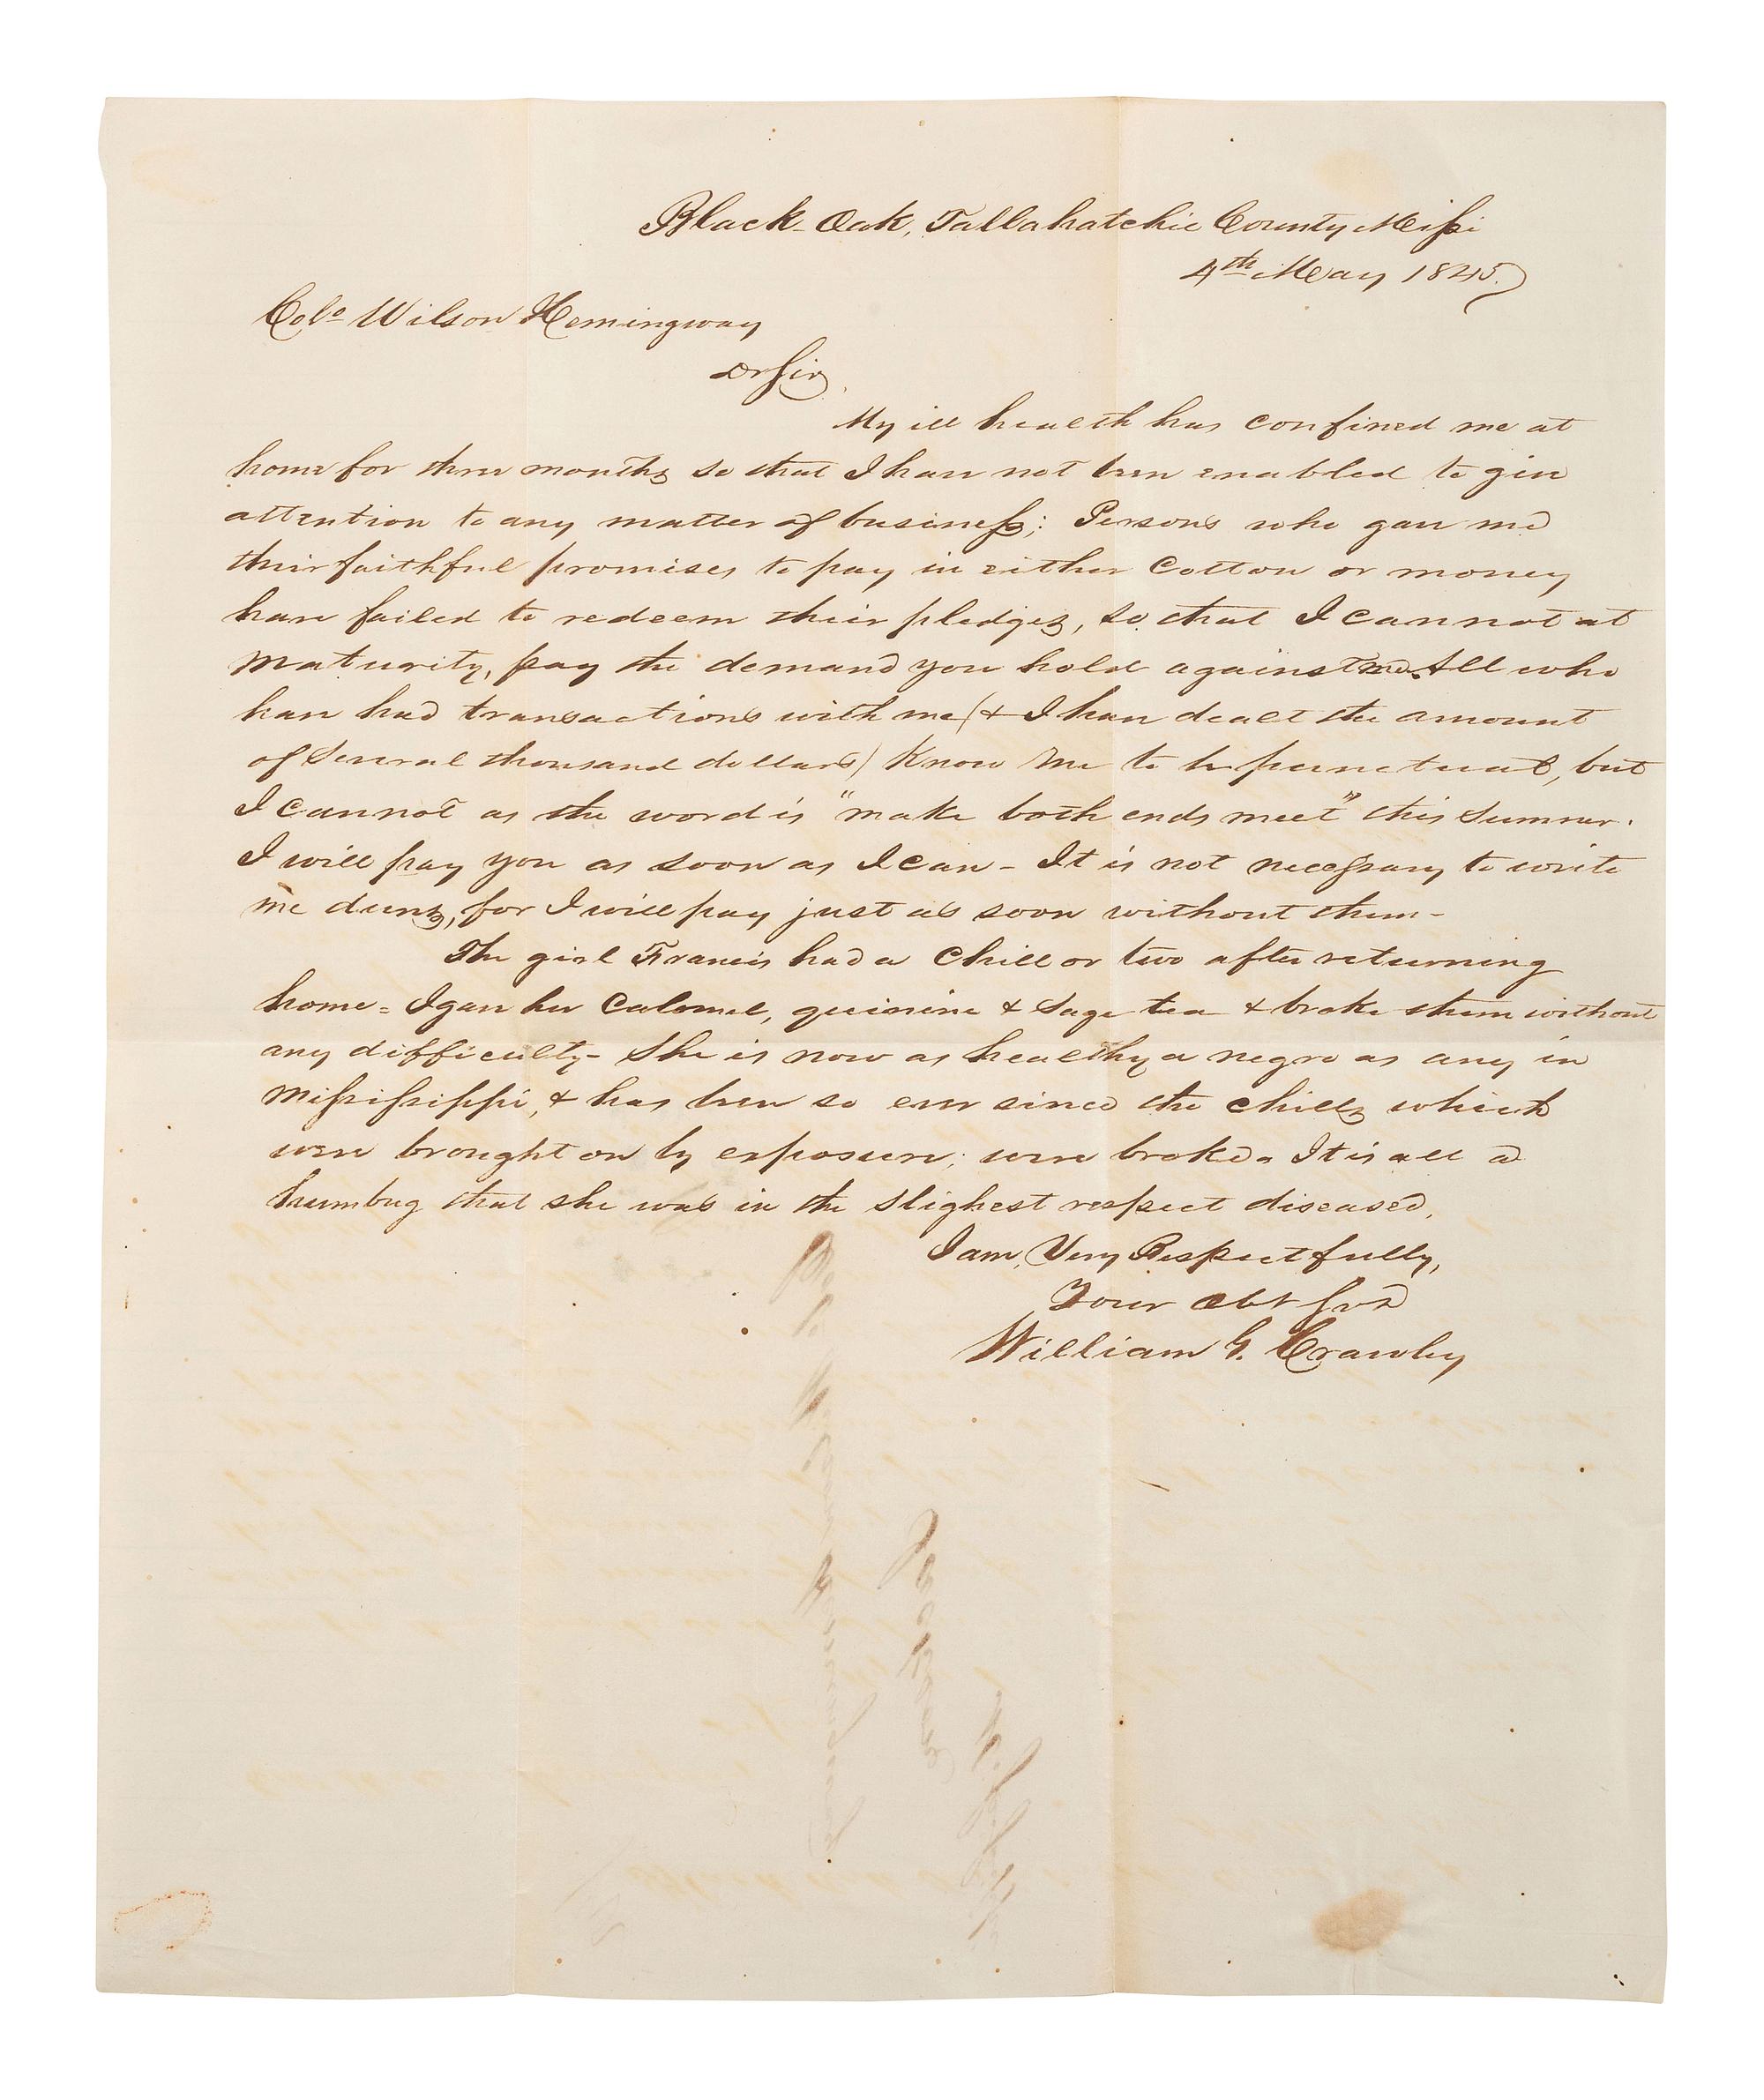 Black-Oak, Tallahatchie County Missi
4th May 1845
Colo Wilson Hemingway
Dr Sir,
My ill health has confined me at
home for three months so that I have not been enabled to give
attention to any matter of business; Persons who gave me
their faithful promises to pay in either Cotton or money
have failed to redeem their pledges, so that I cannot at
maturity, pay the demand you hold against me. All who
have had transactions with me (& I have dealt the amount
of Several thousand dollars) Know me to be punctual, but
I cannot as the word is "make both ends meet" this Summer.
I will pay you as soon as I can - It is not necessary to write
me duns, for I will pay just as soon without them -
The girl Francis had a Chill or two after returning
home - I gave her Calomel, quinine & Sage tea & broke them without
any difficulty - She is now as healthy a negro as any in
Mississippi, & has been so ever since the chills which
were brought on by exposure; were broke. It is all a
humbug that she was in the slighest respect diseased.
I am, Very Respectfully,
Your Obt Svt
William G. Crawley